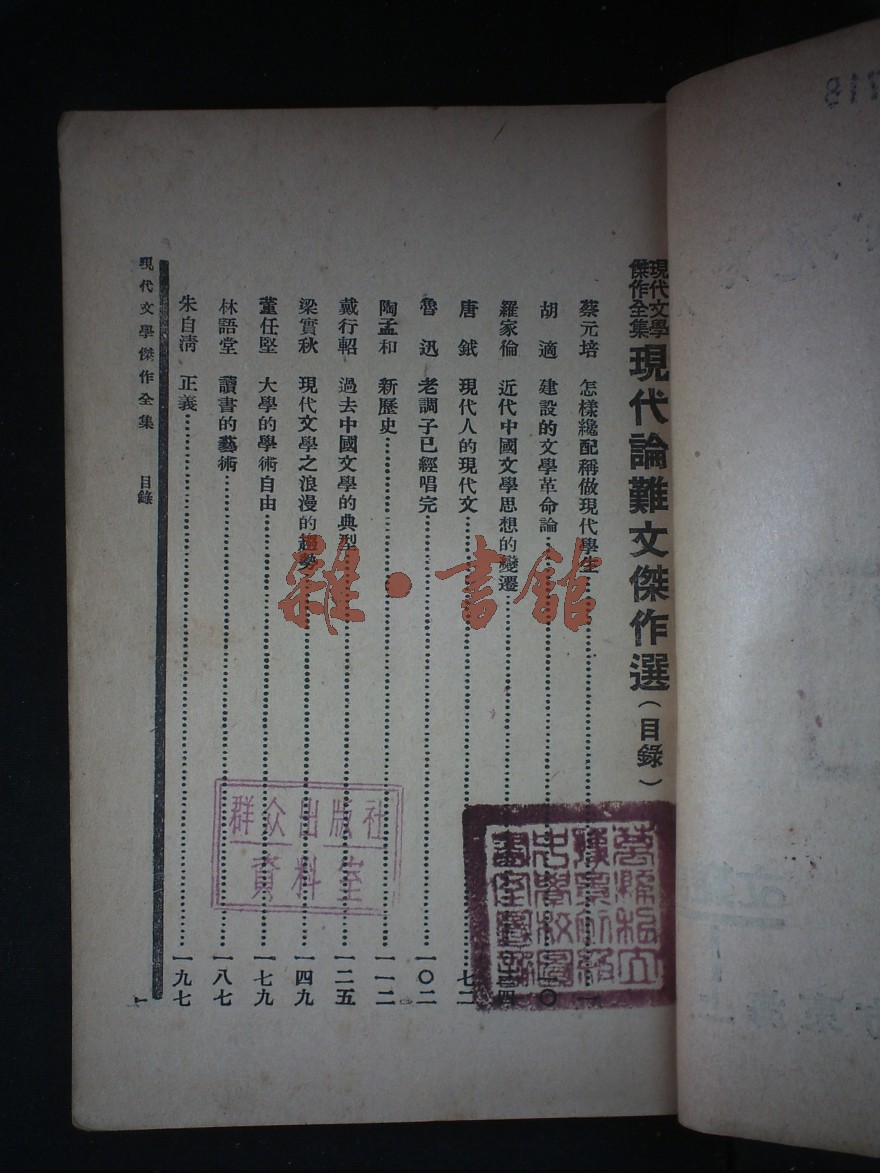 現代文學
傑作全集
現代論難文傑作選(目錄)
蔡元培 怎樣纔配稱做現代學生……一
胡適 建設的文學革命論……
羅家倫 近代中國文學思想的變遷……
唐鉞 現代人的現代文……七二
魯迅 老調子已經唱完……一〇二
陶孟和 新歷史……一一二
戴行軺 過去中國文學的典型……一二五
梁實秋 現代文學之浪漫的趨勢……一四九
董任堅 大學的學術自由……一七九
林語堂 讀書的藝術……一八七
朱自清 正義……一九七
現代文學傑作全集 目錄
一
雜·書館
群众出版社
資料室